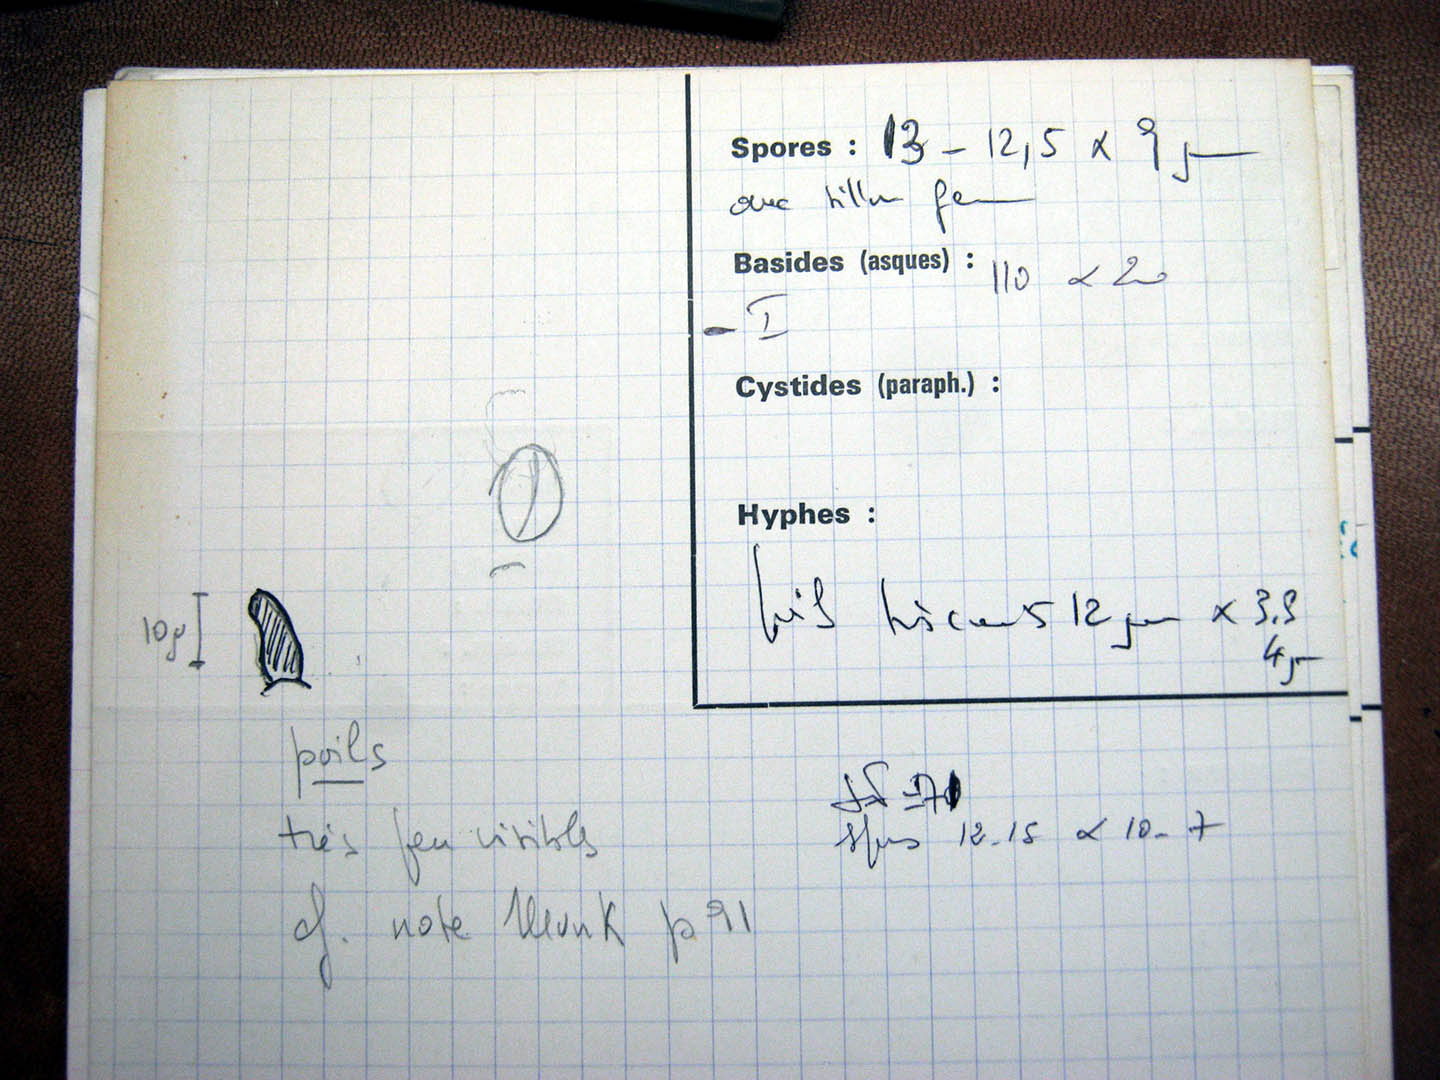 Spores : 13 - 12,5 x 9 µ
avec sillon germ
Basides (asques) : 110 x 20
- I
Cystides (paraph.) :
Hyphes :
poils 12 µm x 3.3
4 µ
10 µ
poils
très peu visibles
cf. note Munk p 91
spores 12-15 x 10-7